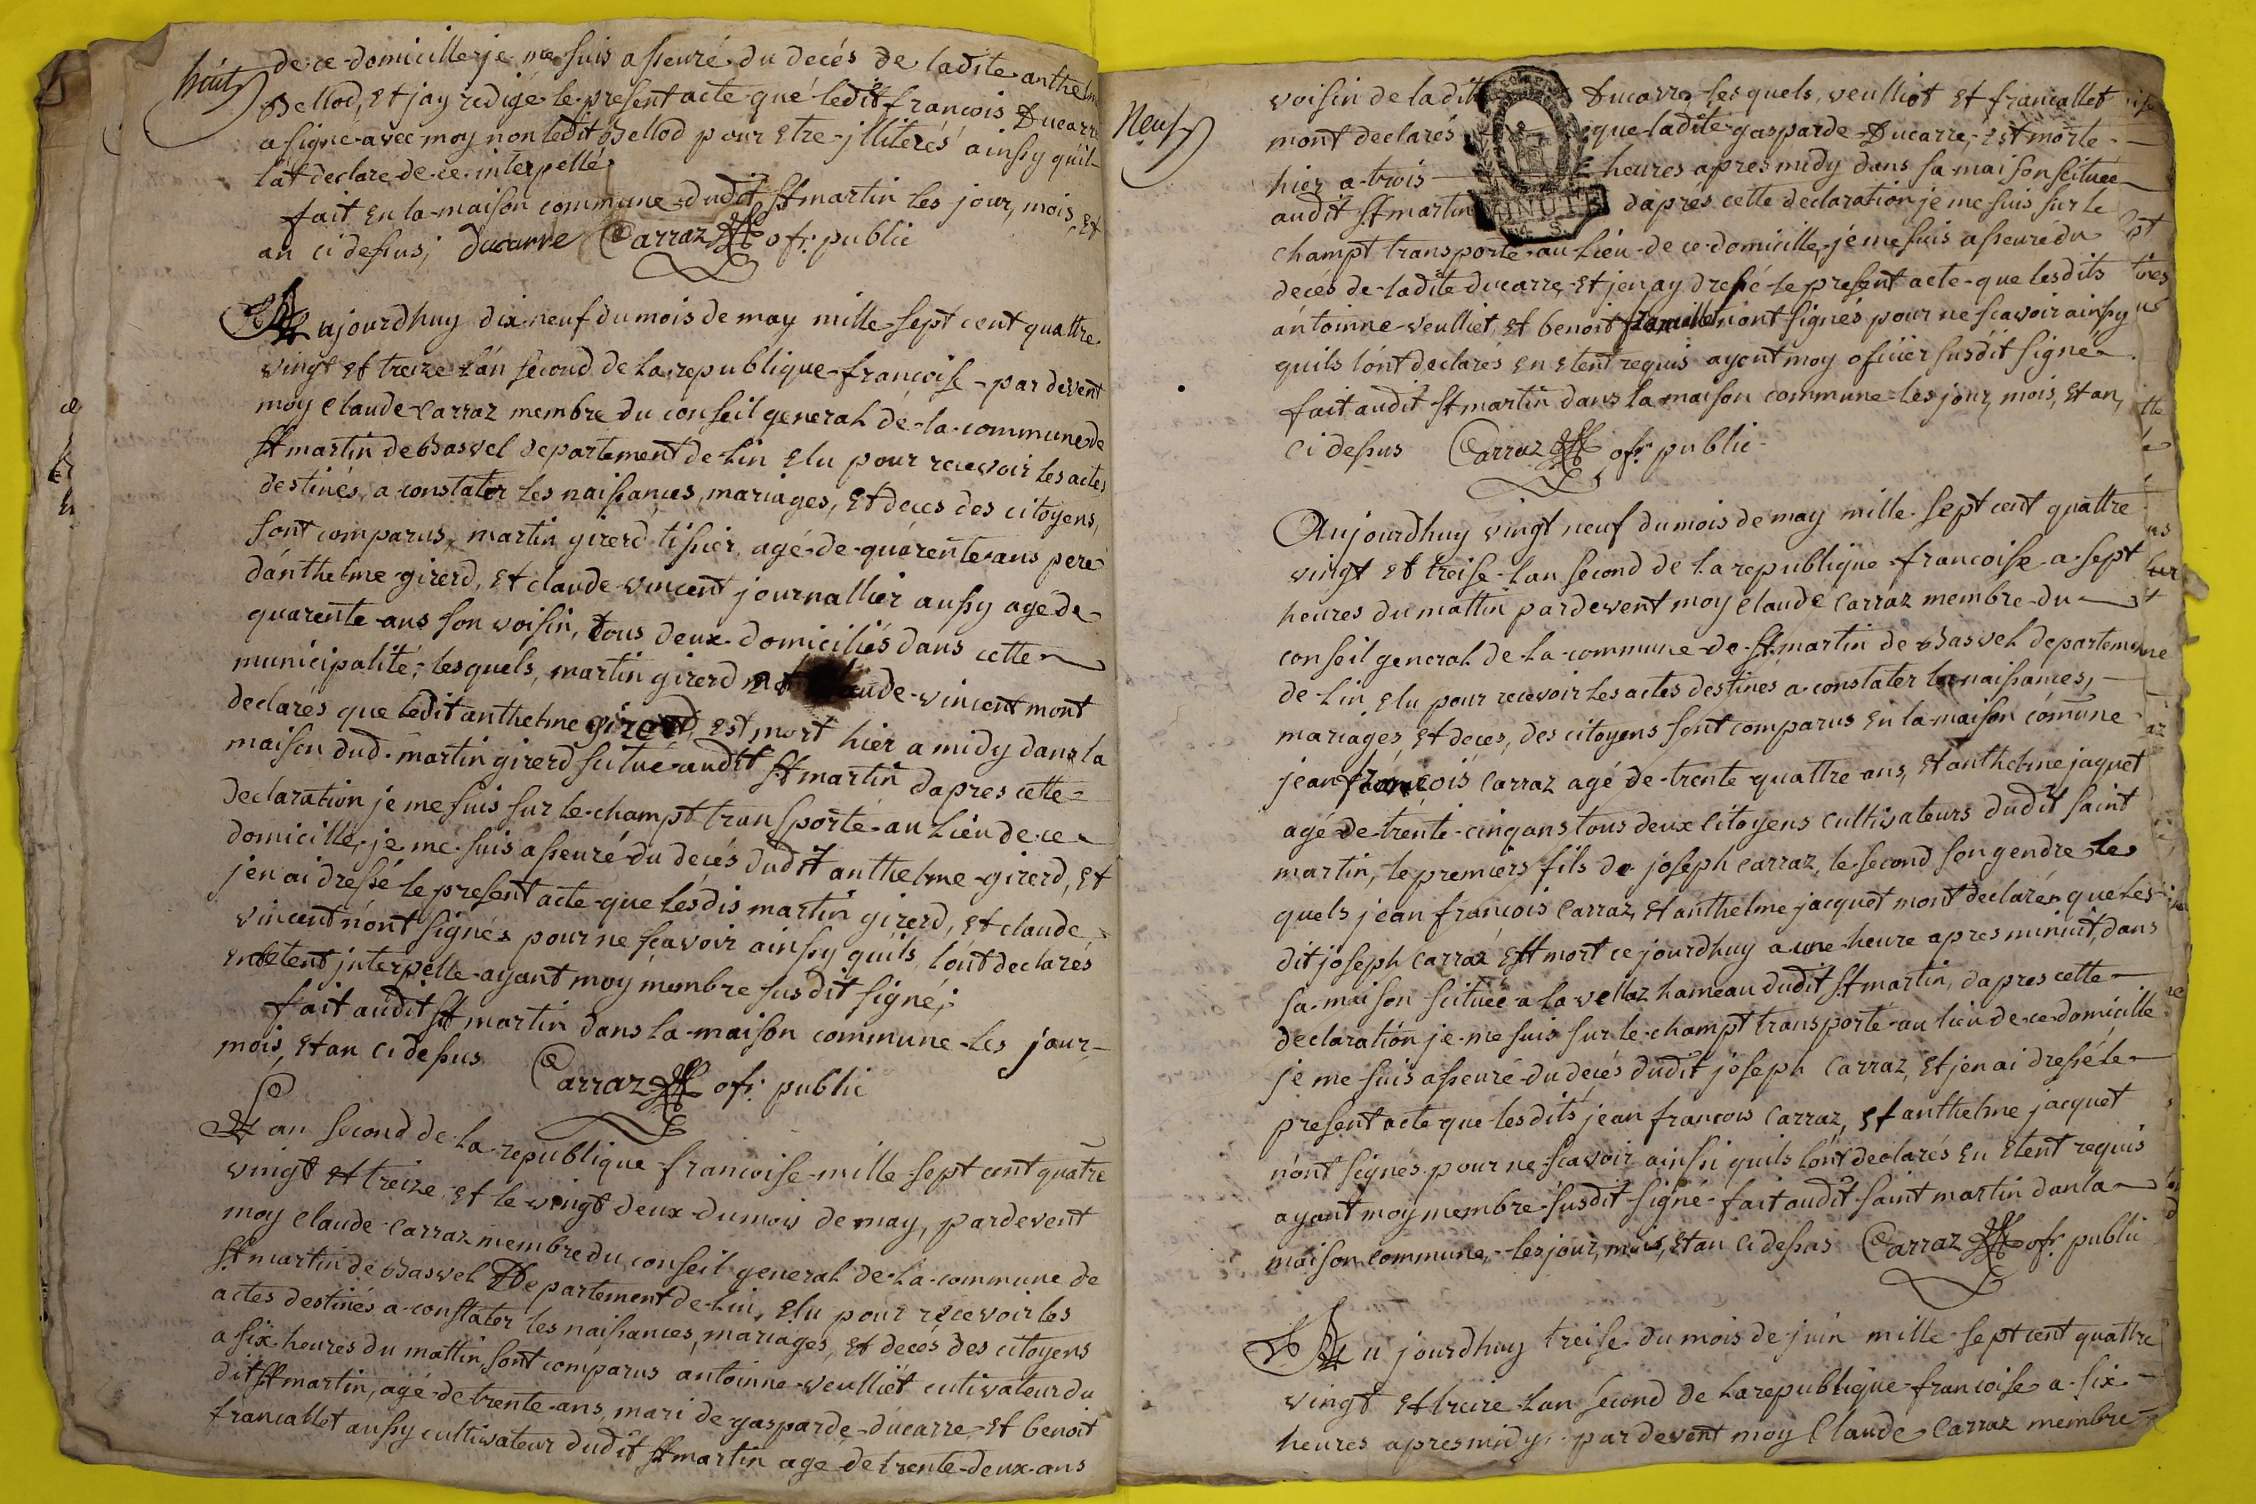 huit
de ce domicille je me suis asseuré du decés de ladite anthelme
Bellod, Et jay redigé le present acte que ledit francois Ducarre
a signé avec moy non ledit Bellod pour Etre jlliterés ainssy quil
lat declare de ce interpellé
fait En la maison commune dudit St martin les jour, mois, Et
an ci dessus; ducarre Carraz ofr. public
Aujourdhuy dix neuf du mois de may mille sept cent quattre
vingt Et treize lan second de la republique francoise par devent
moy Claude Carraz membre du conseil general de la commune de
St martin de Basvel departement de Lin Elu pour recevoir les actes
destinés a constater les naissances, mariages, Et deces des citoyens,
sont comparus, martin girerd tissier, agé de quarente ans pere
danthelme girerd, Et claude vincent journallier aussy agé de
quarente ans son voisin, tous deux domiciliés dans cette
municipalité; lesquels, martin girerd Et claude vincent mont
declarés que ledit anthelme girerd, Est mort hier a midy dans la
maison dud. martin girerd scitué audit St martin dapres cette
declaration je me suis sur le champt transporté au Lieu de ce
domicille, je me suis asseuré du decés dudit anthelme girerd, Et
jen ai dressé le present acte que lesdis martin girerd, Et claude
vincent nont signés pour ne scavoir ainssy quils lont declarés
En Etent jnterpelle ayant moy membre susdit signé;
fait audit St martin dans la maison commune les jour
mois, Et an ci dessus Carraz ofr. public
Lan second de la republique francoise mille sept cent quatre
vingt Et treize, Et le vingt deux du mois de may, pardevent
moy Claude Carraz membre du conseil general de la commune de
St martin de Basvel Departement de Lin, Elu pour recevoir les
actes destinés a constater les naissances, mariages, Et decés des citoyens
a six heures du mattin sont comparus antoinne veulliet cutivateur du
dit St martin, agé de trente ans, mari de gasparde ducarre, Et benoit
francallet aussy cultivateur dudit St martin age de trente deux ans
Neuf
voisin de ladite Ducarre, lesquels, veulliet Et francallet
mont declarés que ladite gasparde Ducarre, Est morte
hier a trois heures apres midy dans sa maison scituée
audit St martin dapres cette declaration je me suis sur le
champt transporté au Lieu de ce domicille, je me suis asseure du
decés de ladite ducarre, Et jen ay dressé le present acte que lesdits
antoinne veulliet, Et benoit francallet nont signés pour ne scavoir ainssy
quils lont declarés En Etent requis ayent moy oficier susdit signé
fait audit St martin dans la maison commune les jour, mois, Et an,
ci dessus Carraz ofr. public
Aujourdhuy vingt neuf du mois de may mille sept cent quattre
vingt Et treise lan second de la republique francoise a sept
heures du mattin pardevent moy claude Carraz membre du
conseil general de la commune de St martin de Basvel departement
de Lin Elu pour recevoir les actes destines a constater les naissances,
mariages Et deces, des citoyens sont comparus En la maison comune
jean francois Carraz agé de trente quattre ans, Et anthelme jaquet
agé de trente cinq ans tous deux Citoyens Cultivateurs dudit saint
martin, le premiers fils de joseph Carraz, le second son gendre les
quels jean francois Carraz, Et anthelme jacquet mont declarés que les
dit joseph Carraz Est mort ce jourdhuy a une heure apres minuit, dans
sa maison scituée a la vellaz hameau dudit St martin, dapres cette
declaration je me suis sur le champt transporté au lieu de ce domicille
je me suis asseuré du decés dudit joseph Carraz, Et jen ai dressé le
present acte que lesdits jean francois Carraz, Et anthelme jacquet
nont signés pour ne scavoir ainsi quils lont declarés En Etent requis
ayant moy membre susdit signé fait audit saint martin dans la
maison commune, les jour, mois, Et an ci dessus Carraz ofr. public
Aujourdhuy treise du mois de juin mille sept cent quattre
vingt Et treize lan second de la republique francoise a six
heures apres midy, pardevent moy Claude Carraz membre